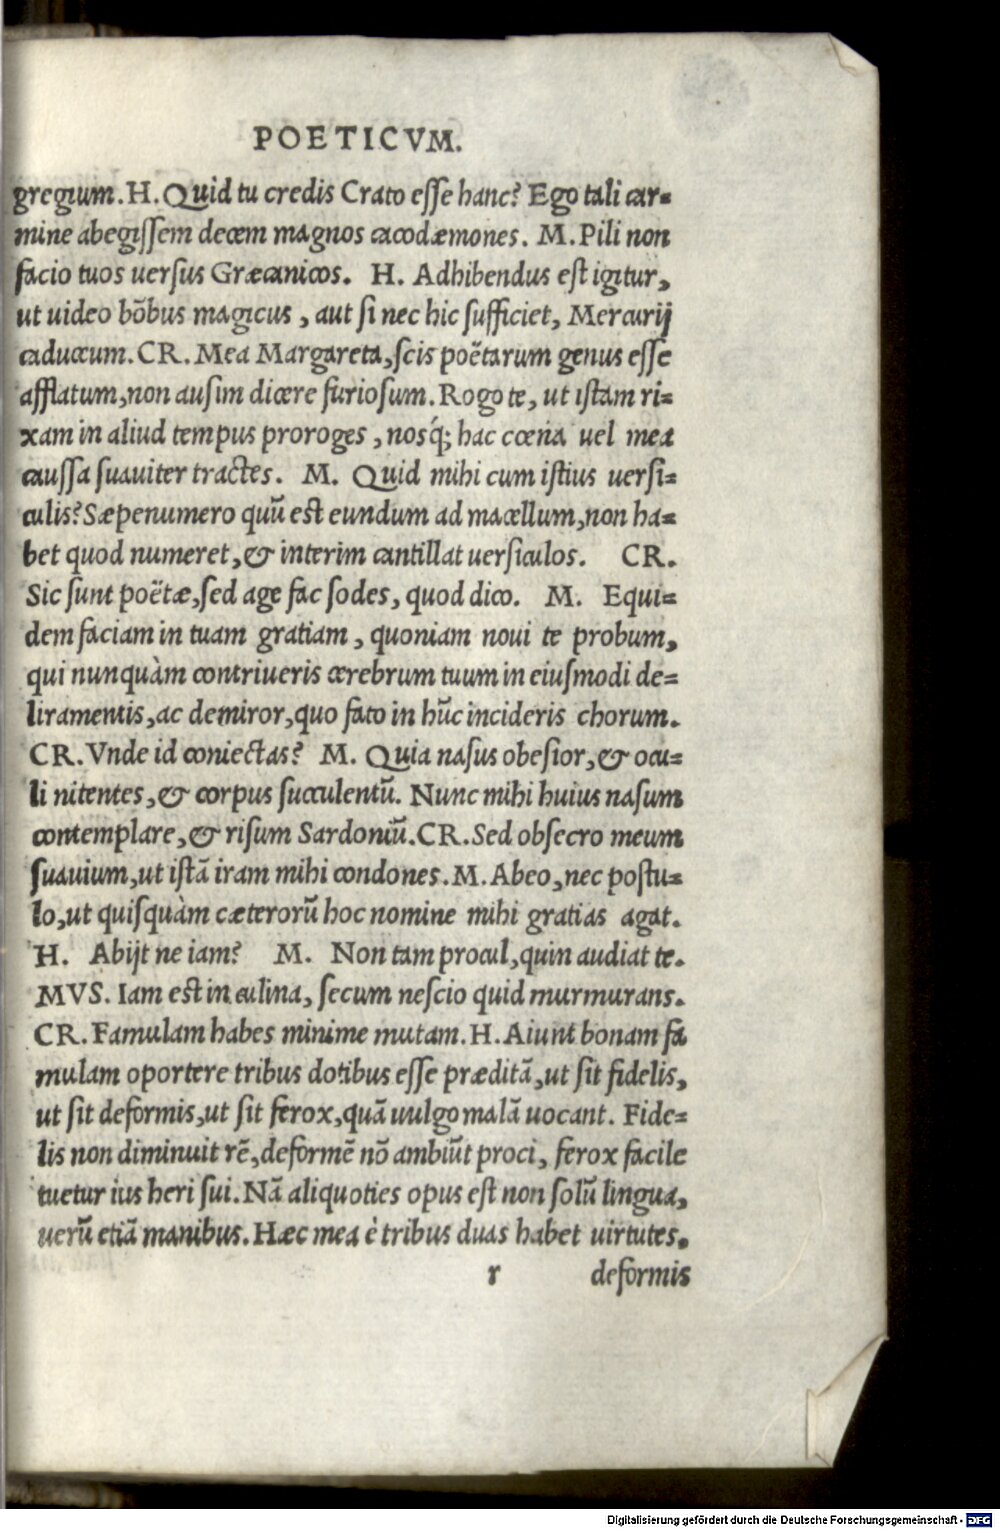 POETICVM.
gregium. H. Quid tu credis Crato esse hanc? Ego tali car-
mine abegissem decem magnos cacodæmones. M. Pili non
facio tuos uersus Græcanicos. H. Adhibendus est igitur,
ut uideo bõbus magicus, aut si nec hic sufficiet, Mercurij
caduceum. CR. Mea Margareta, scis poëtarum genus esse
afflatum, non ausim dicere furiosum. Rogo te, ut istam ri-
xam in aliud tempus proroges, nosq́; hac cœna uel mea
caussa suauiter tractes. M. Quid mihi cum istius uersi-
culis? Sæpenumero quũ est eundum ad macellum, non ha-
bet quod numeret, & interim cantillat uersiculos. CR.
Sic sunt poëtæ, sed age fac sodes, quod dico. M. Equi-
dem faciam in tuam gratiam, quoniam noui te probum,
qui nunquàm contriueris cerebrum tuum in eiusmodi de-
liramentis, ac demiror, quo fato in hũc incideris chorum.
CR. Vnde id coniectas? M. Quia nasus obesior, & ocu-
li nitentes, & corpus succulentũ. Nunc mihi huius nasum
contemplare, & risum Sardoniũ. CR. Sed obsecro meum
suauium, ut istã iram mihi condones. M. Abeo, nec postu-
lo, ut quisquàm cæterorũ hoc nomine mihi gratias agat.
H. Abijt ne iam? M. Non tam procul, quin audiat te.
MVS. Iam est in culina, secum nescio quid murmurans.
CR. Famulam habes minime mutam. H. Aiunt bonam fa
mulam oportere tribus dotibus esse præditã, ut sit fidelis,
ut sit deformis, ut sit ferox, quã uulgo malã uocant. Fide-
lis non diminuit rẽ, deformẽ nõ ambiũt proci, ferox facile
tuetur ius heri sui. Nã aliquoties opus est non solũ lingua,
uerũ etiã manibus. Hæc mea è tribus duas habet uirtutes.
r deformis
Digitalisierung gefördert durch die Deutsche Forschungsgemeinschaft - DFG